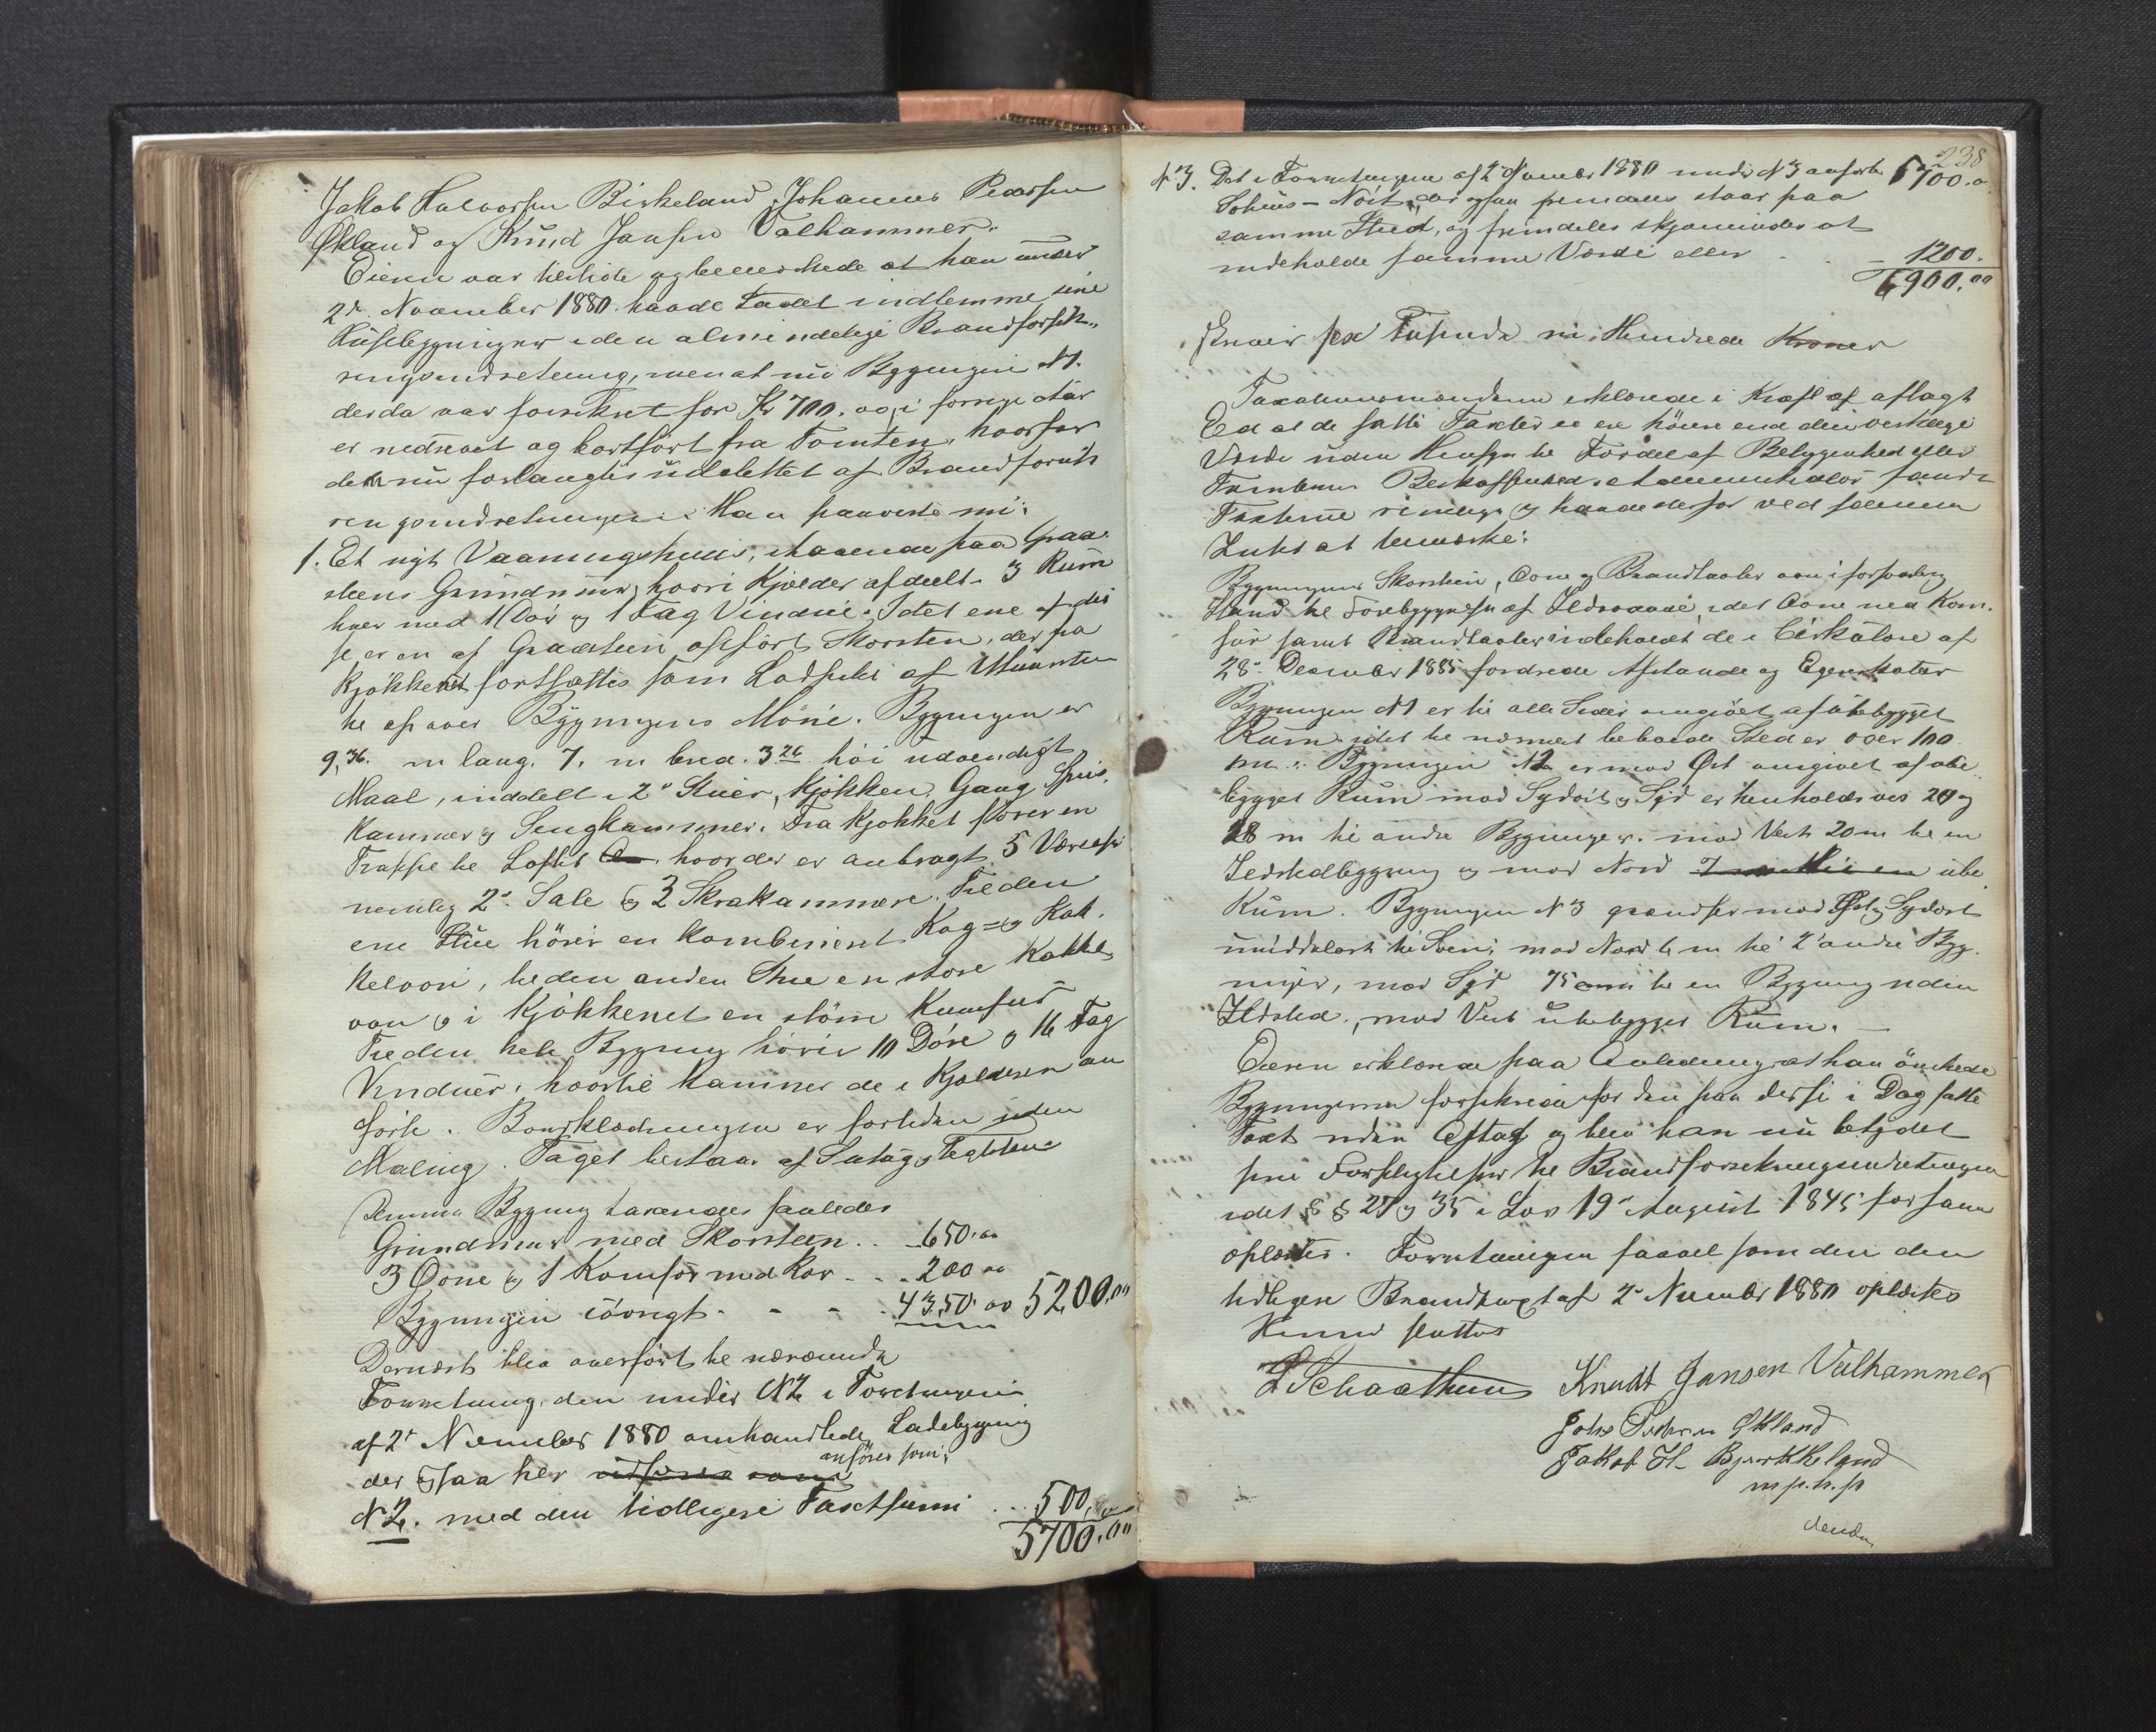 Jakob Halvorsen Birkeland, Johannes Pedersen
Økland og Knud Jansen Valhammer.
Eieren var tilstede og bemerkede at han under
2den November 1880 havde ladet indlemme sine
Husebygninger i den almindelige Brandforsik-
ringsindretning, men at nu Bygningen N1.
der da var forsikret for Kr 700. og i forrige Aar
er nedrevet og bortført fra Tomten, hvorfor
den nu forlanges udslettet af Brandforsik
ringsindretningen. Han paaviste nu:
1. Et nyt Vaaningshuus, staaende paa Graa-
steens Grundmuur, hvori Kjelder afdeelt i 3 Rum
hver med 1 Dør og 1 Fag Vindue. I det ene af dis
se er en af Graasteen opført Skorsten, der fra
Kjøkkenet fortsættes som Ladpibe af Muursten
til op over Bygningens Møne. Bygningen er
9,36. m lang. 7. m bred. 3.26 høi udvendigt
Maal, inddelt i 2de Stuer, Kjøkken, Gang, Spis-
kammer og Sengkammer. Fra Kjøkket fører en
Trappe til Loftet hvor der er anbragt 5 Værelser
nemlig 2de Sale og 3 Skrakammere. Til den
ene Stue hører en kombineret Kog= og Kak-
kelovn, til den anden Stue en større Kakkel
ovn og i Kjøkkenet en større Kumfur
Til den hele Bygning hører 10 Døre og 16 Fag
Vinduer, hvortil kommer de i Kjelderen an
førte. Bordklædningen er forleden uden
Maling. Taget bestaar af Sutag og Teglsten
Denne Bygning taxeredes saaledes
Grundmur med Skorsteen . . 650.00
3 Ovne og 1 Komfør med Rør - . . 200 00
Bygningen iøvrigt - - - . 4350.00 5200.00
Dernæst blev overført til nærværende
Forretning den under N2 i Forretningen
af 2den November 1880 omhandlede Ladebygning
anføres som:
der ogsaa her
N2. med den tidligere Taxtsum . . . 500,
5700.00
238
N3. Det i Forretningen af 2den November 1880 under N3 anførte 5700.0
Søhuus - Nöst, der ogsaa fremdeles staar paa
samme Sted, og fremdeles skjønnedes at
indeholde samme Værdi eller - . - 1200.
6900.00
skriver sex Tusinde ni Hundrede Kroner
Taxationsmændene erklærede i Kraft af aflagt
Ed at de satte Taxter ei ere høiere end den virkelige
Værdi uden Hensyn til Fordel af Beliggenhed eller
Tomtens Beskaffenhed. Administrator fandt
Taxterne rimelige og havde derfor ved samme
Intet at bemærke.
Bygningens Skorsteen, Ovne og Brandtavler var i forsvarlig
Stand til Forebyggelse af Ildsvaade, idet Ovne med Kom-
før samt Brandtavler indeholdt de i Cirkulære af
28de December 1885 fordrede Afstande og Egenskaber
Bygningen N1 er til alle Sider omgivet af ubebygget
Rum idet til nærmest beboede Sted er over 100
m. Bygningen N2 er mod Øst omgivet af ube
bygget Rum mod Sydost og Syd er henholdsvis 20 og
28 m til andre Bygninger. mod Vest 20m til en
Ildstedbygning og mod Nord ube
Rum. Bygningen N3 grændser mod Øst og Sydost
umiddelbart til Søen, mod Nord 6 m til 2 andre Byg-
ninger, mod Syd 75 cm til en Bygning uden
Ildsted, mod Vest ubebygget Rum. -
Eieren erklærede paa Anledning at han ønskede
Bygningerne forsikrede for den paa disse i Dag satte
Taxt uden Aftag og blev han nu betydet
sine Forpligtelser til Brandforsikringsindretningen
idet §§ 27 og 35 i Lov 19de August 1845 for ham
oplæstes. Forretningen saavel som den den
tidligere Brandtaxt af 2den November 1880 oplæstes
Hermed sluttet
Knudt Jansen Valhammer
Johs Pedersen Økland
Jakob H. Bjerkkeland
m. p. h. p